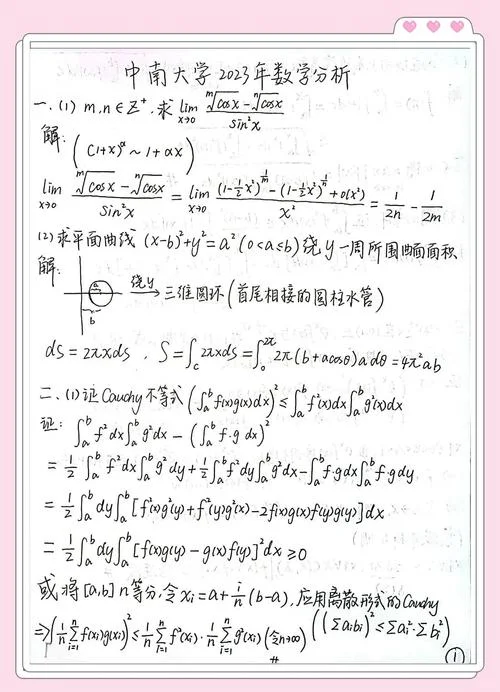 中南大学2023年数学分析
一.(1) m,n∈Z⁺,求 lim_{x→0} (ᵐ√cosx - ⁿ√cosx)/sin²x
解: ((1+x)^α ~ 1+αx)
lim_{x→0} (ᵐ√cosx - ⁿ√cosx)/sin²x = lim_{x→0} ((1-½x²)^{1/m} - (1-½x²)^{1/n} + o(x²))/x² = 1/2n - 1/2m
(2) 求平面曲线 (x-b)²+y²=a² (0<a≤b) 绕y一周所围曲面面积
解: a b 绕y → 三维圆环(首尾相接的圆柱水管)
ds=2πxds , S=∫_c 2πxds=∫₀^{2π} 2π(b+acosθ)adθ=4π²ab
二、(1) 证Cauchy不等式 (∫ₐᵇ f(x)g(x)dx)² ≤ ∫ₐᵇ f²(x)dx∫ₐᵇ g²(x)dx
证: ∫ₐᵇ f²dx∫ₐᵇ g²dx - (∫ₐᵇ f·g dx)²
= ½∫ₐᵇ f²dx∫ₐᵇ g²dy + ½∫ₐᵇ f²dy∫ₐᵇ g²dx - ∫ₐᵇ f·gdx∫ₐᵇ f·gdy
= ½∫ₐᵇ dy∫ₐᵇ [f²(x)g²(y)+f²(y)g²(x)-2f(x)g(x)f(y)g(y)]dx
= ½∫ₐᵇ dy∫ₐᵇ [f(x)g(y) - g(x)f(y)]²dx ≥ 0
或将[a,b] n等分,令 xᵢ=a+(i/n)(b-a), 应用离散形式的Cauchy
⇒ (1/n Σ_{i=1}^n f(xᵢ)g(xᵢ))² ≤ 1/n Σ_{i=1}^n f²(xᵢ) · 1/n Σ_{i=1}^n g²(xᵢ) (令n→∞) ((Σaᵢbᵢ)² ≤ Σaᵢ²·Σbᵢ²)
#
①